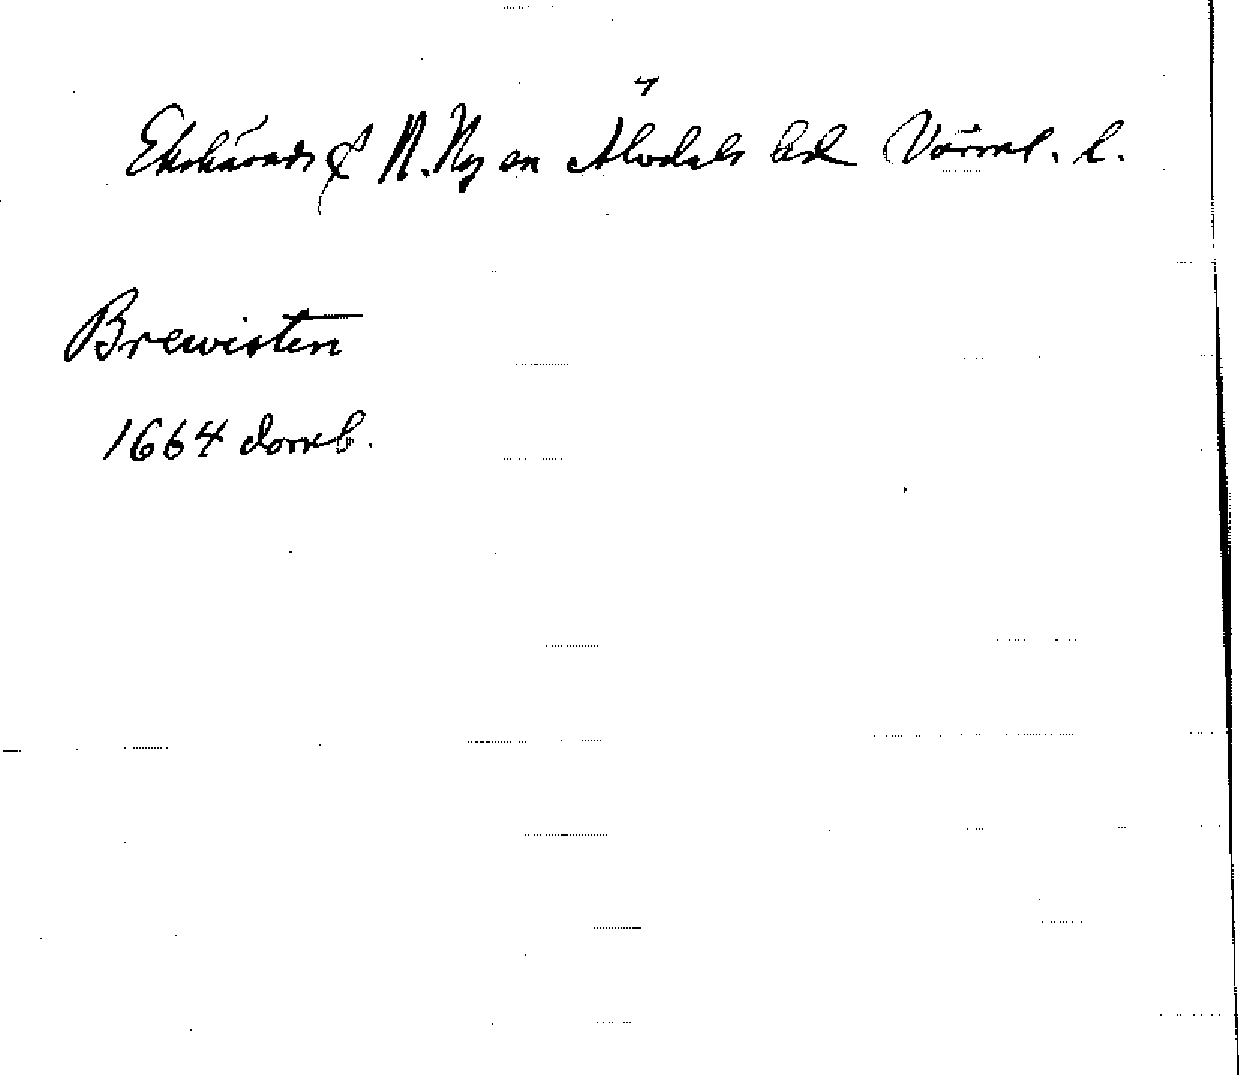 Ekshärads sn N. Ny en Älvdals hd Värml. l.
Brewisten
1664 domb.